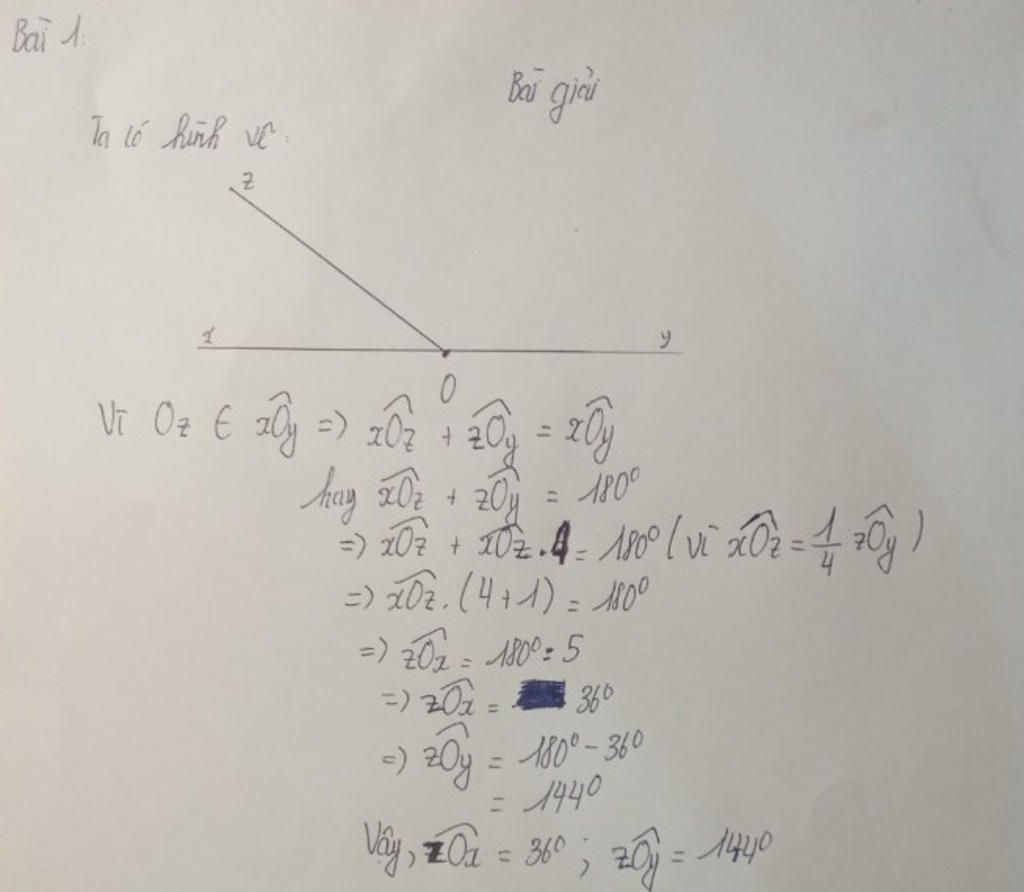 Bài 1:
Bài giải
Ta có hình vẽ:
z
x y
O
Vì Oz ∈ \widehat{xOy} => \widehat{xOz} + \widehat{zOy} = \widehat{xOy}
hay \widehat{xOz} + \widehat{zOy} = 180⁰
=> \widehat{xOz} + \widehat{xOz} . 4 = 180⁰ (vì \widehat{xOz} = \frac{1}{4} \widehat{zOy})
=> \widehat{xOz} . (4+1) = 180⁰
=> \widehat{zOx} = 180⁰ : 5
=> \widehat{zOx} = 36⁰
=> \widehat{zOy} = 180⁰ - 36⁰
= 144⁰
Vậy, \widehat{zOx} = 36⁰ ; \widehat{zOy} = 144⁰